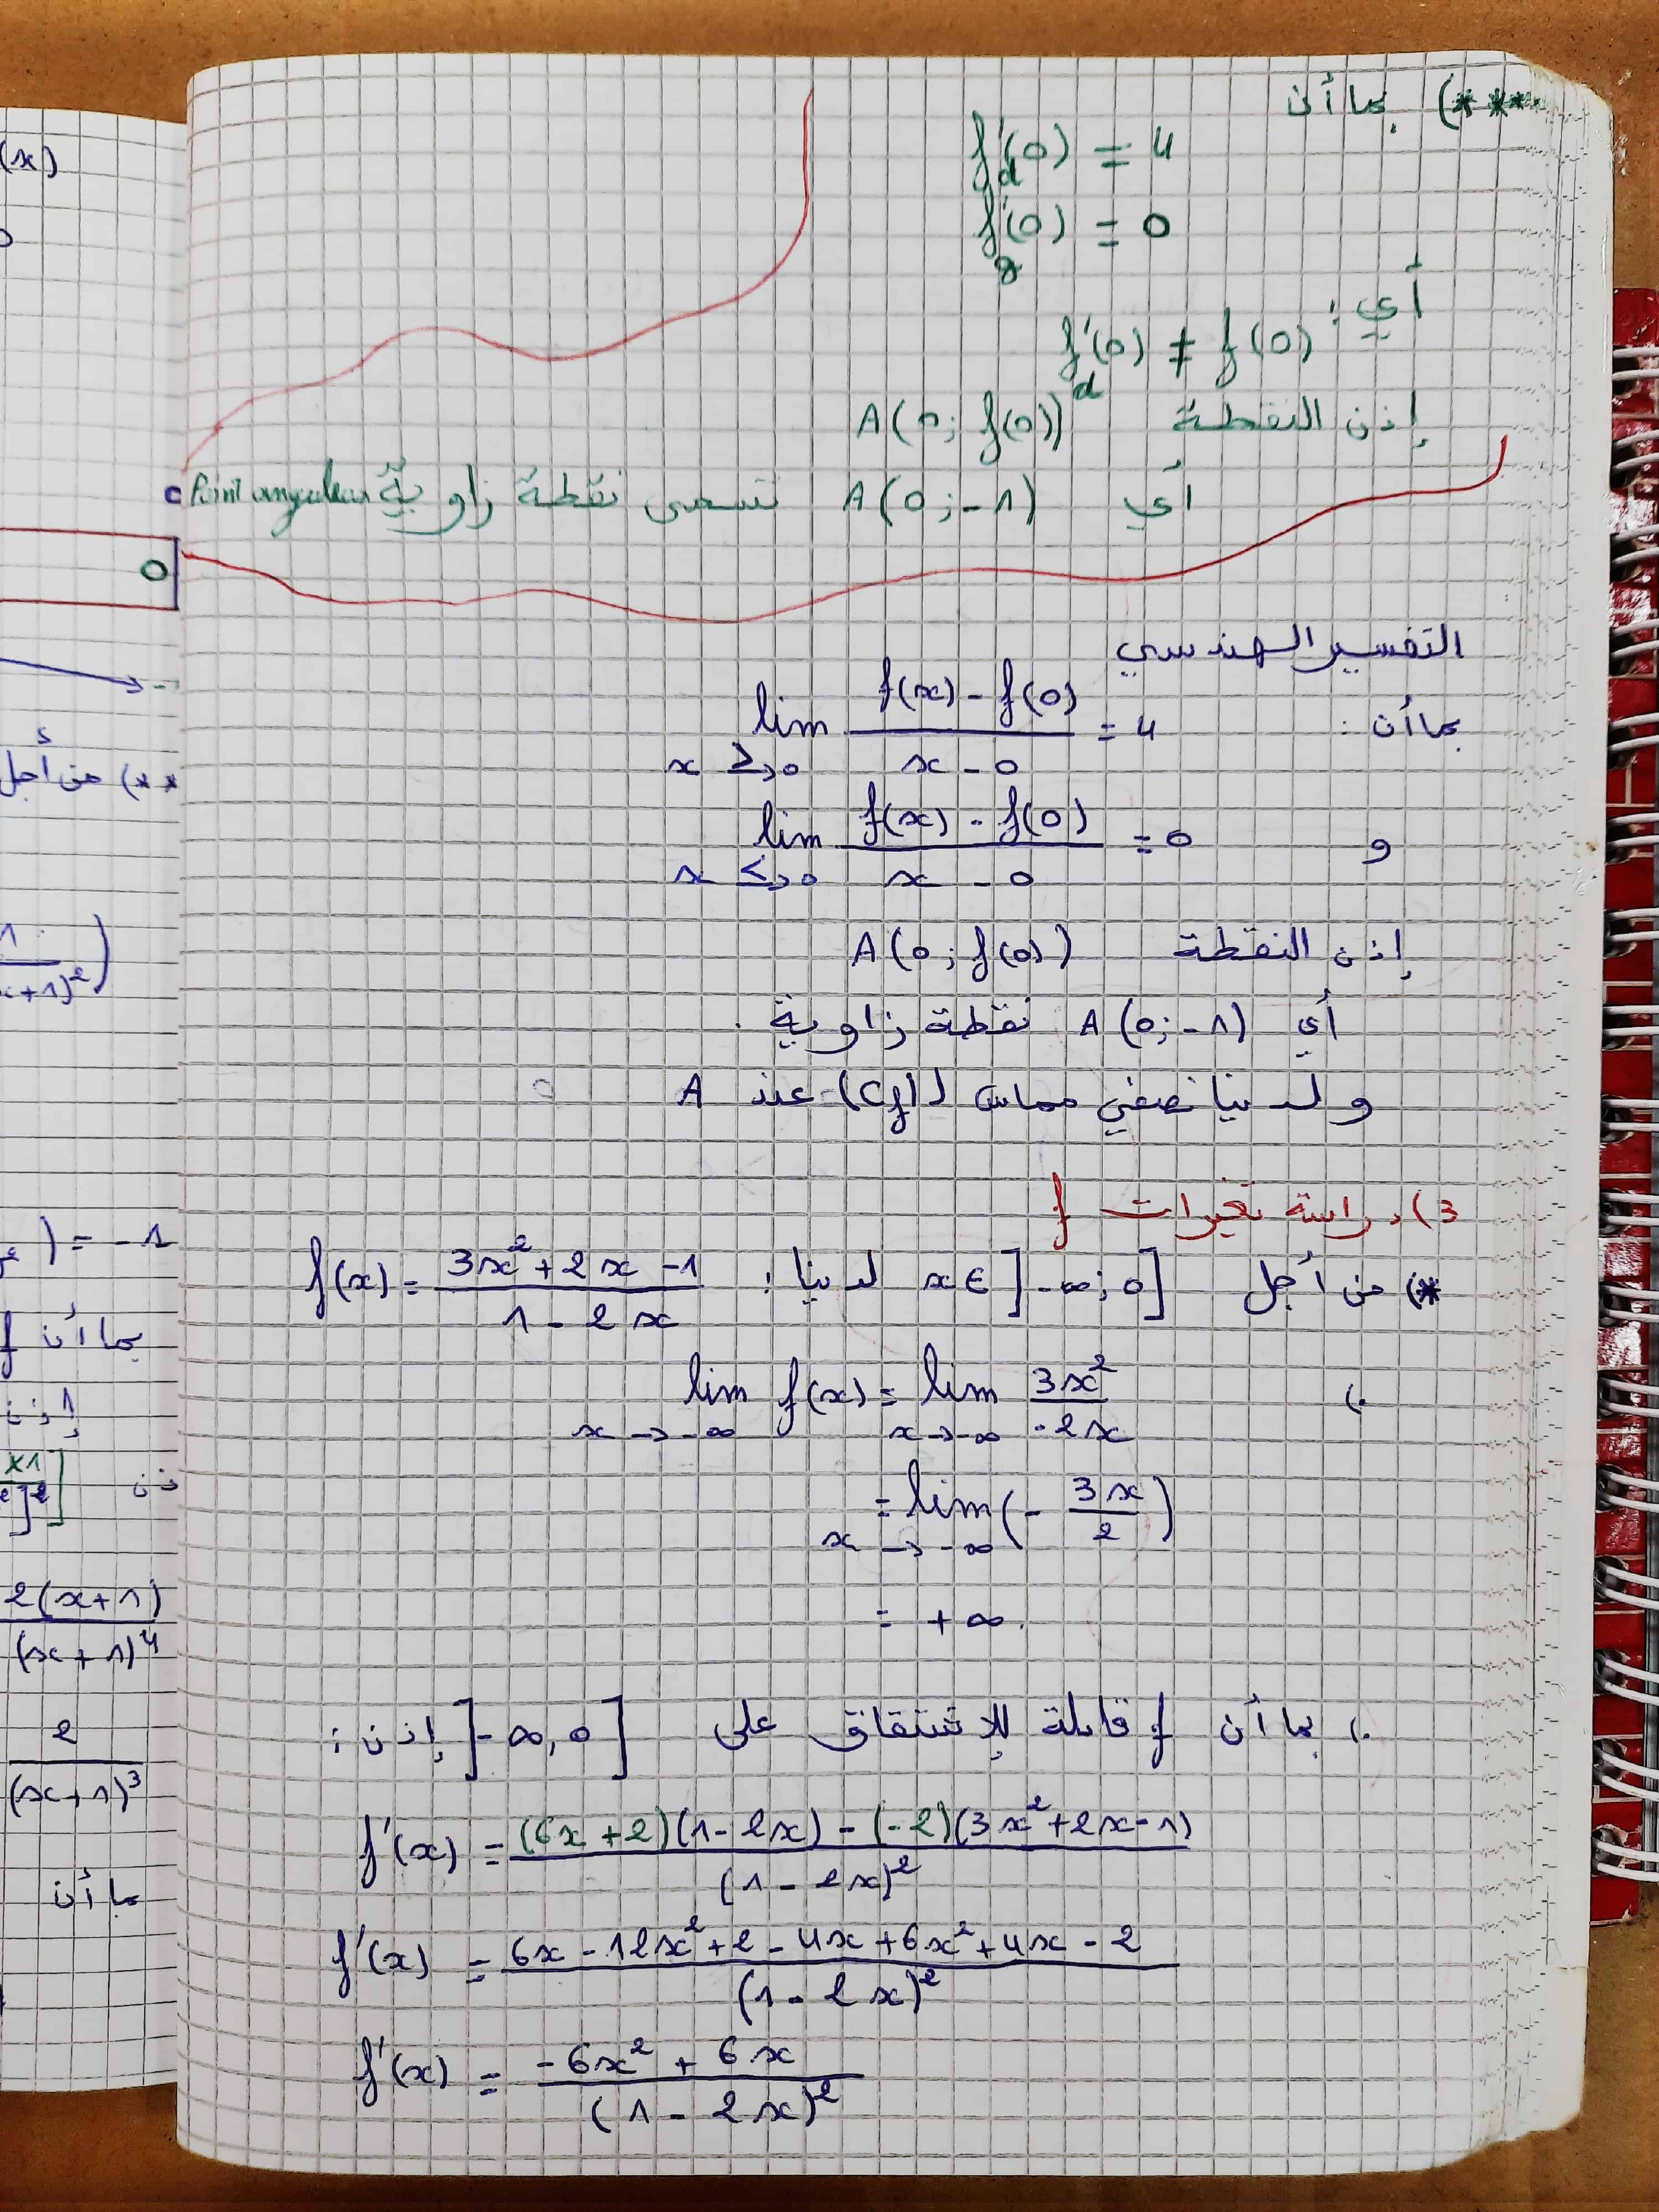 (x)
0
**) من أجل
= -1
بما أن f
إذن
2(x+1)
(x+1)⁴
2
(x+1)³
بما أن
***) بما أن
f'd(0) = 4
f'g(0) = 0
أي :
f'd(0) ≠ f(0)
إذن النقطة A(0; f(0))
أي A(0; -1) تسمى نقطة زاويّة Point anguleux
التفسير الهندسي
بما أن : lim x→>0 (f(x) - f(0))/(x - 0) = 4
و lim x→<0 (f(x) - f(0))/(x - 0) = 0
إذن النقطة A(0; f(0))
أي A(0; -1) نقطة زاوية.
ولدينا نصفي مماس لـ (Cf) عند A
3) دراسة تغيرات f
*) من أجل x∈]-∞; 0] لدينا : f(x) = (3x²+2x-1)/(1-2x)
.) lim x→-∞ f(x) = lim x→-∞ 3x²/-2x
= lim x→-∞ (- 3x/2)
= +∞.
.) بما أن f قابلة للإشتقاق على ]-∞, 0] إذن :
f'(x) = ((6x+2)(1-2x) - (-2)(3x²+2x-1))/(1-2x)²
f'(x) = (6x - 12x² + 2 - 4x + 6x² + 4x - 2)/(1-2x)²
f'(x) = (-6x² + 6x)/(1-2x)²